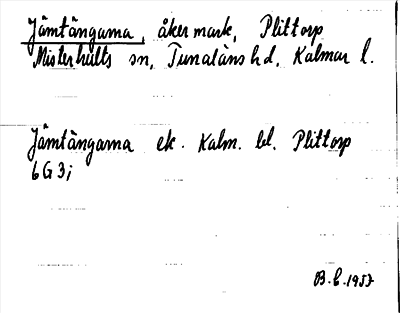 Jämtängarna, åkermark, Plittorp
Misterhults sn, Tunaläns hd, Kalmar l.
Jämtängarna ek. Kalm. bl. Plittorp
6G3i
B.C. 1957